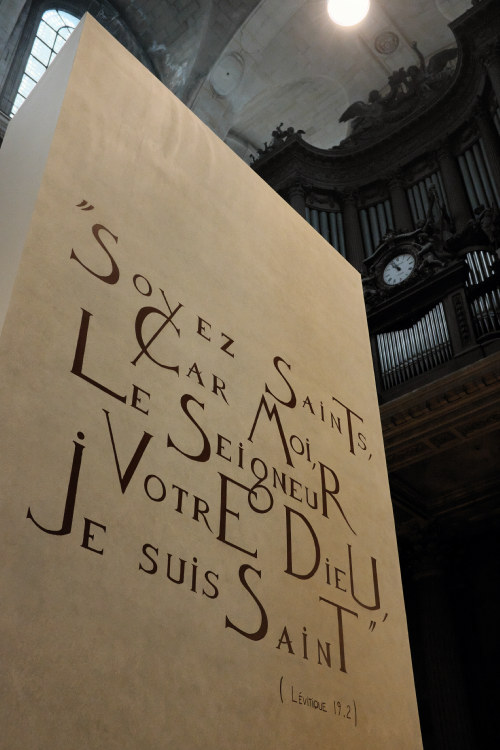 "Soyez Saints,
Car Moi,
Le SeigneuR
VotrE DieU,
Je suis SainT"
(Lévitique 19.2)